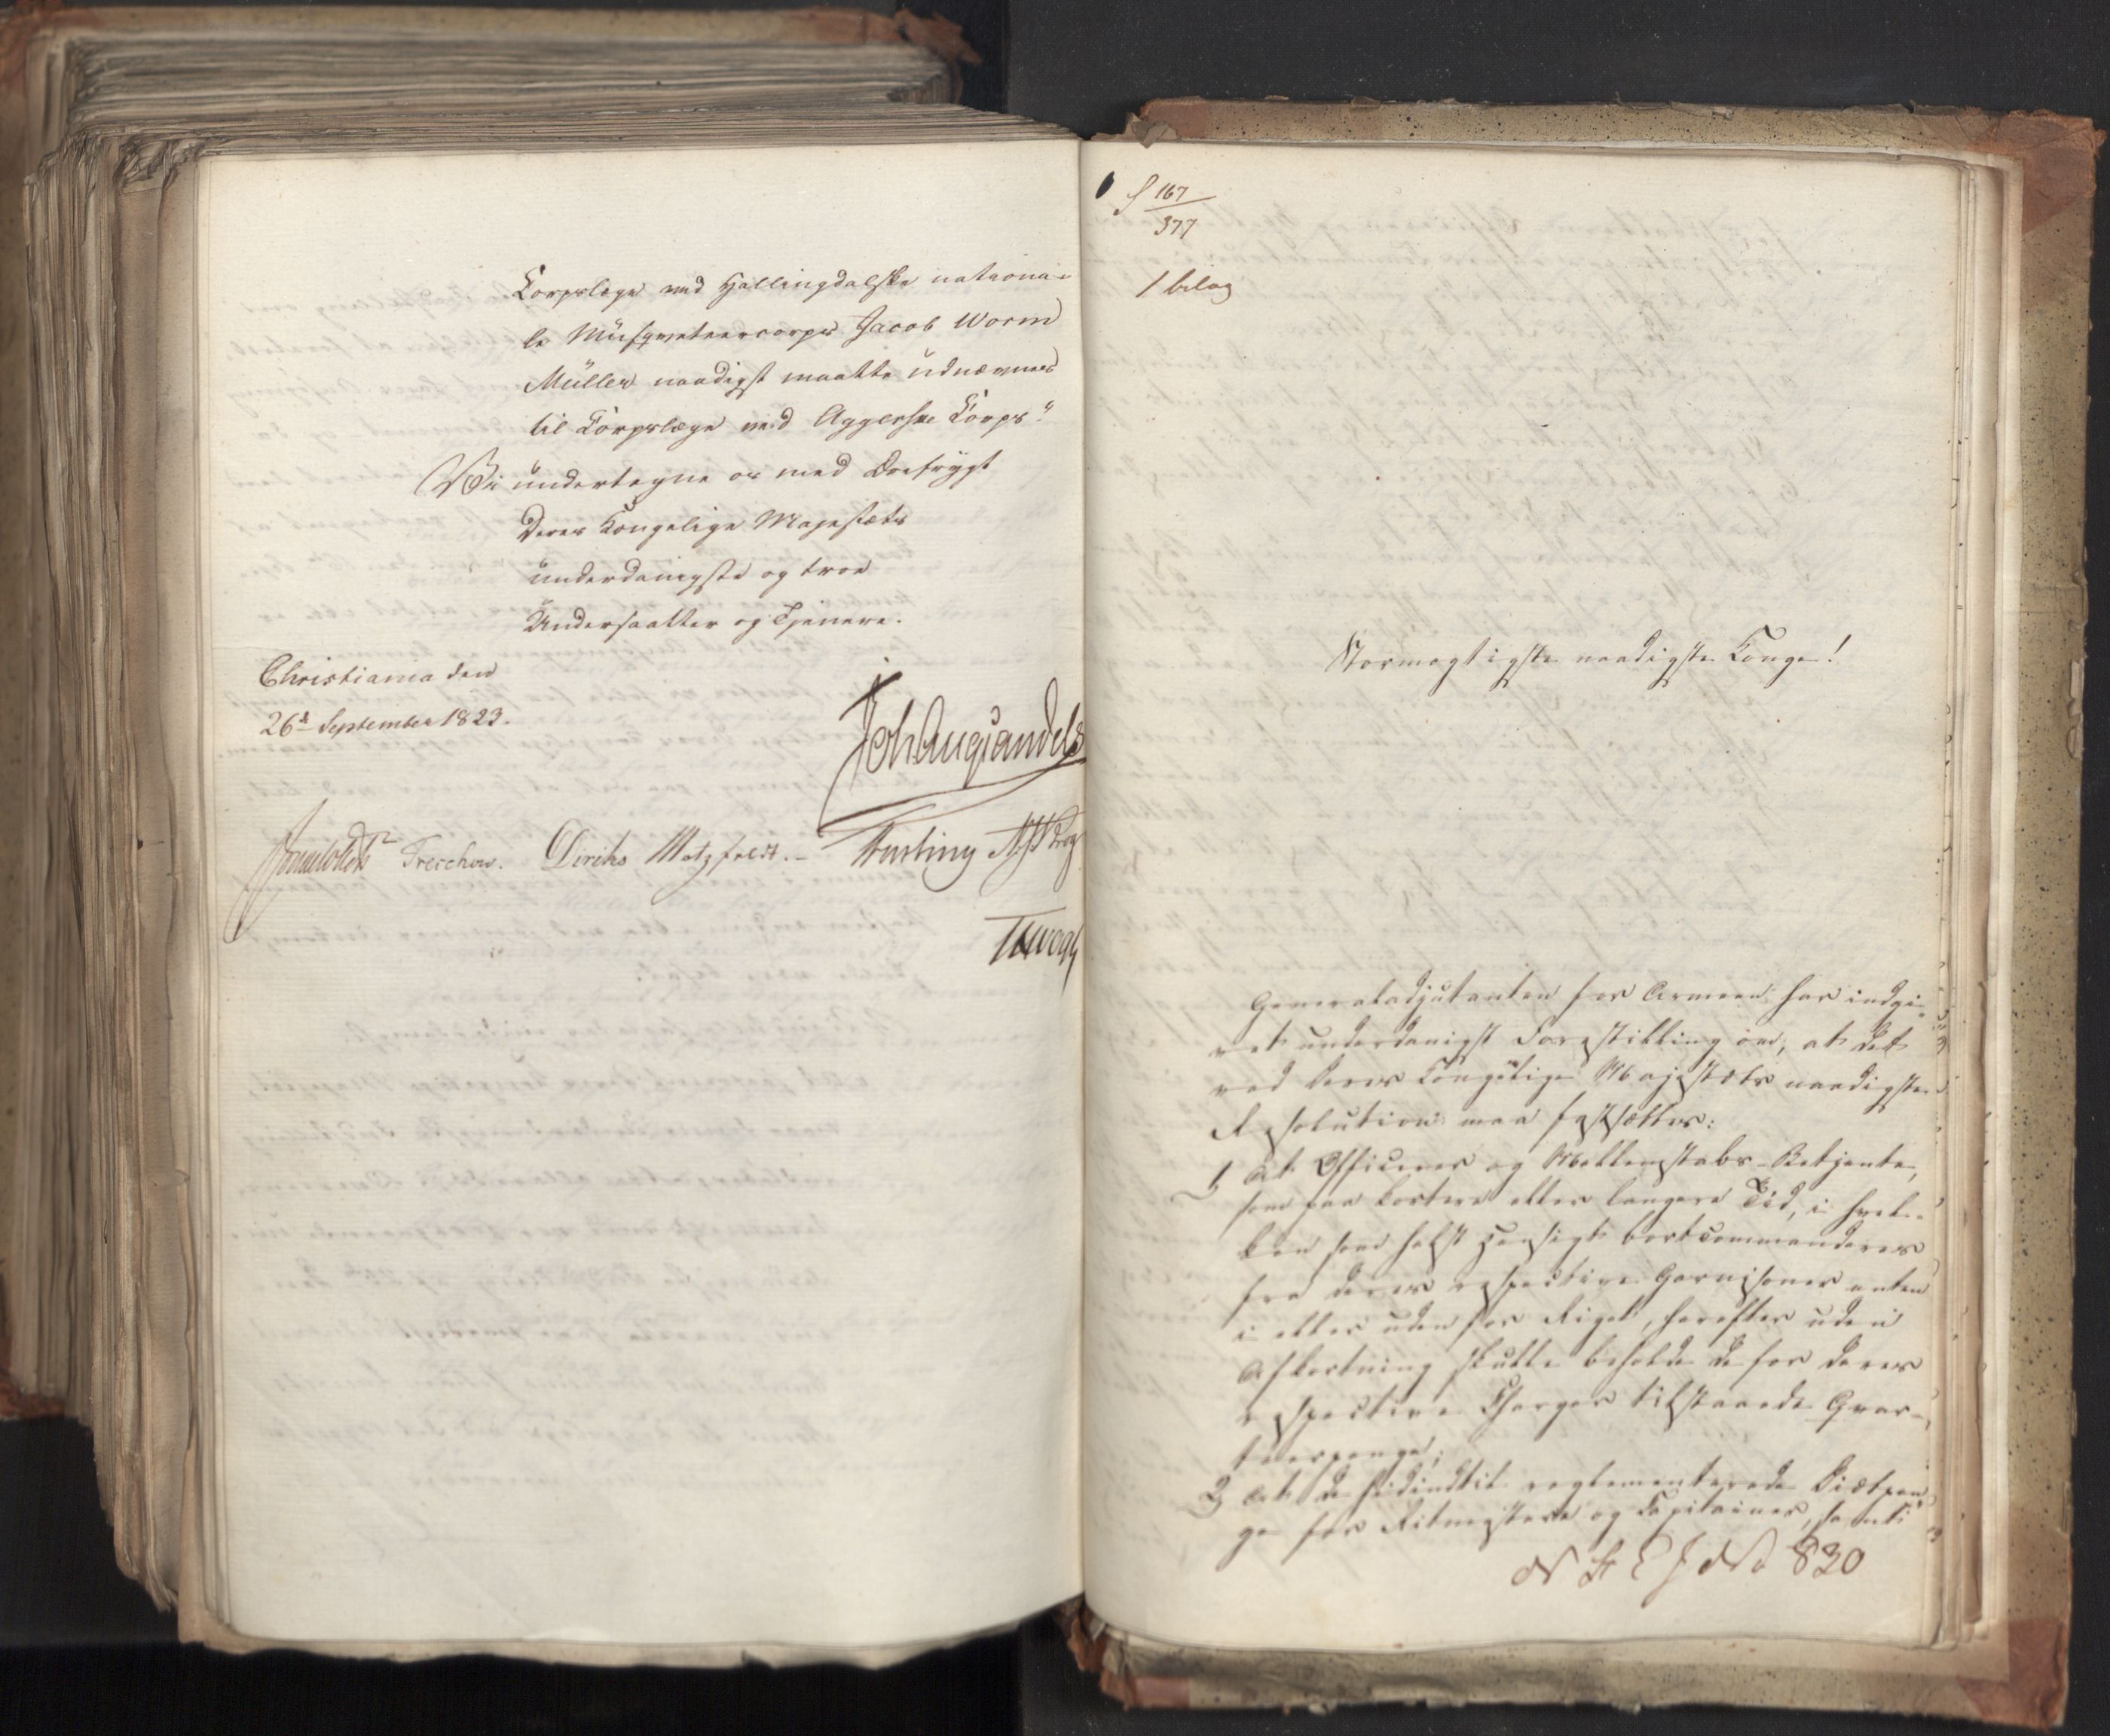 Corpslæge ved Hallingdalske nationa-
le Musqveteercorps Jacob Worm
Müller naadigst maatte udnævnes
til Corpslæge ved Aggershuske Corps."
Vi undertegne os med Ærefrygt
Deres Kongelige Majestæts
underdanigste og troe
Undersaatter og Tjenere.
Christiania den
26d September 1823.
JohAugSandels
Sommerhielm Treschow. Diriks Motzfeldt. Fasting Krog
S 167
377
1 bilag
Stormægtigste naadigste Konge!
Generaladjutanten for Armeen har indgi-
vet underdanigst Forestilling om, at det
ved Deres Kongelige Majestæts naadigste
Resolution maa fastsættes:
1, At Officerer og Mellemstabs-Betjente,
som paa kortere eller længere Tid, i hvil-
ken som helst Hensigt bortcommanderes
fra deres respective Garnisoner enten
i eller uden for Riget, herefter uden
Afkortning skulle beholde de for deres
respective Charger tilstaaede Qvar-
teerpenge;
2, At de hidindtil reglementerede Diætpen-
ge for Ritmestere og Capitainer, samt
No 830